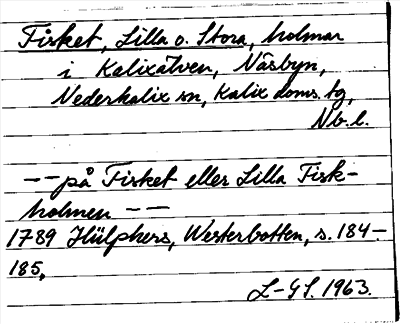 Fisket, Lilla o. Stora, holmar
i Kalixälven, Näsbyn,
Nederkalix sn, Kalix doms. tg,
Nb. l.
-- på Fisket eller Lilla Fisk-
holmen --
1789 Hülphers, Westerbotten, s. 184-
185,
L-GS. 1963.